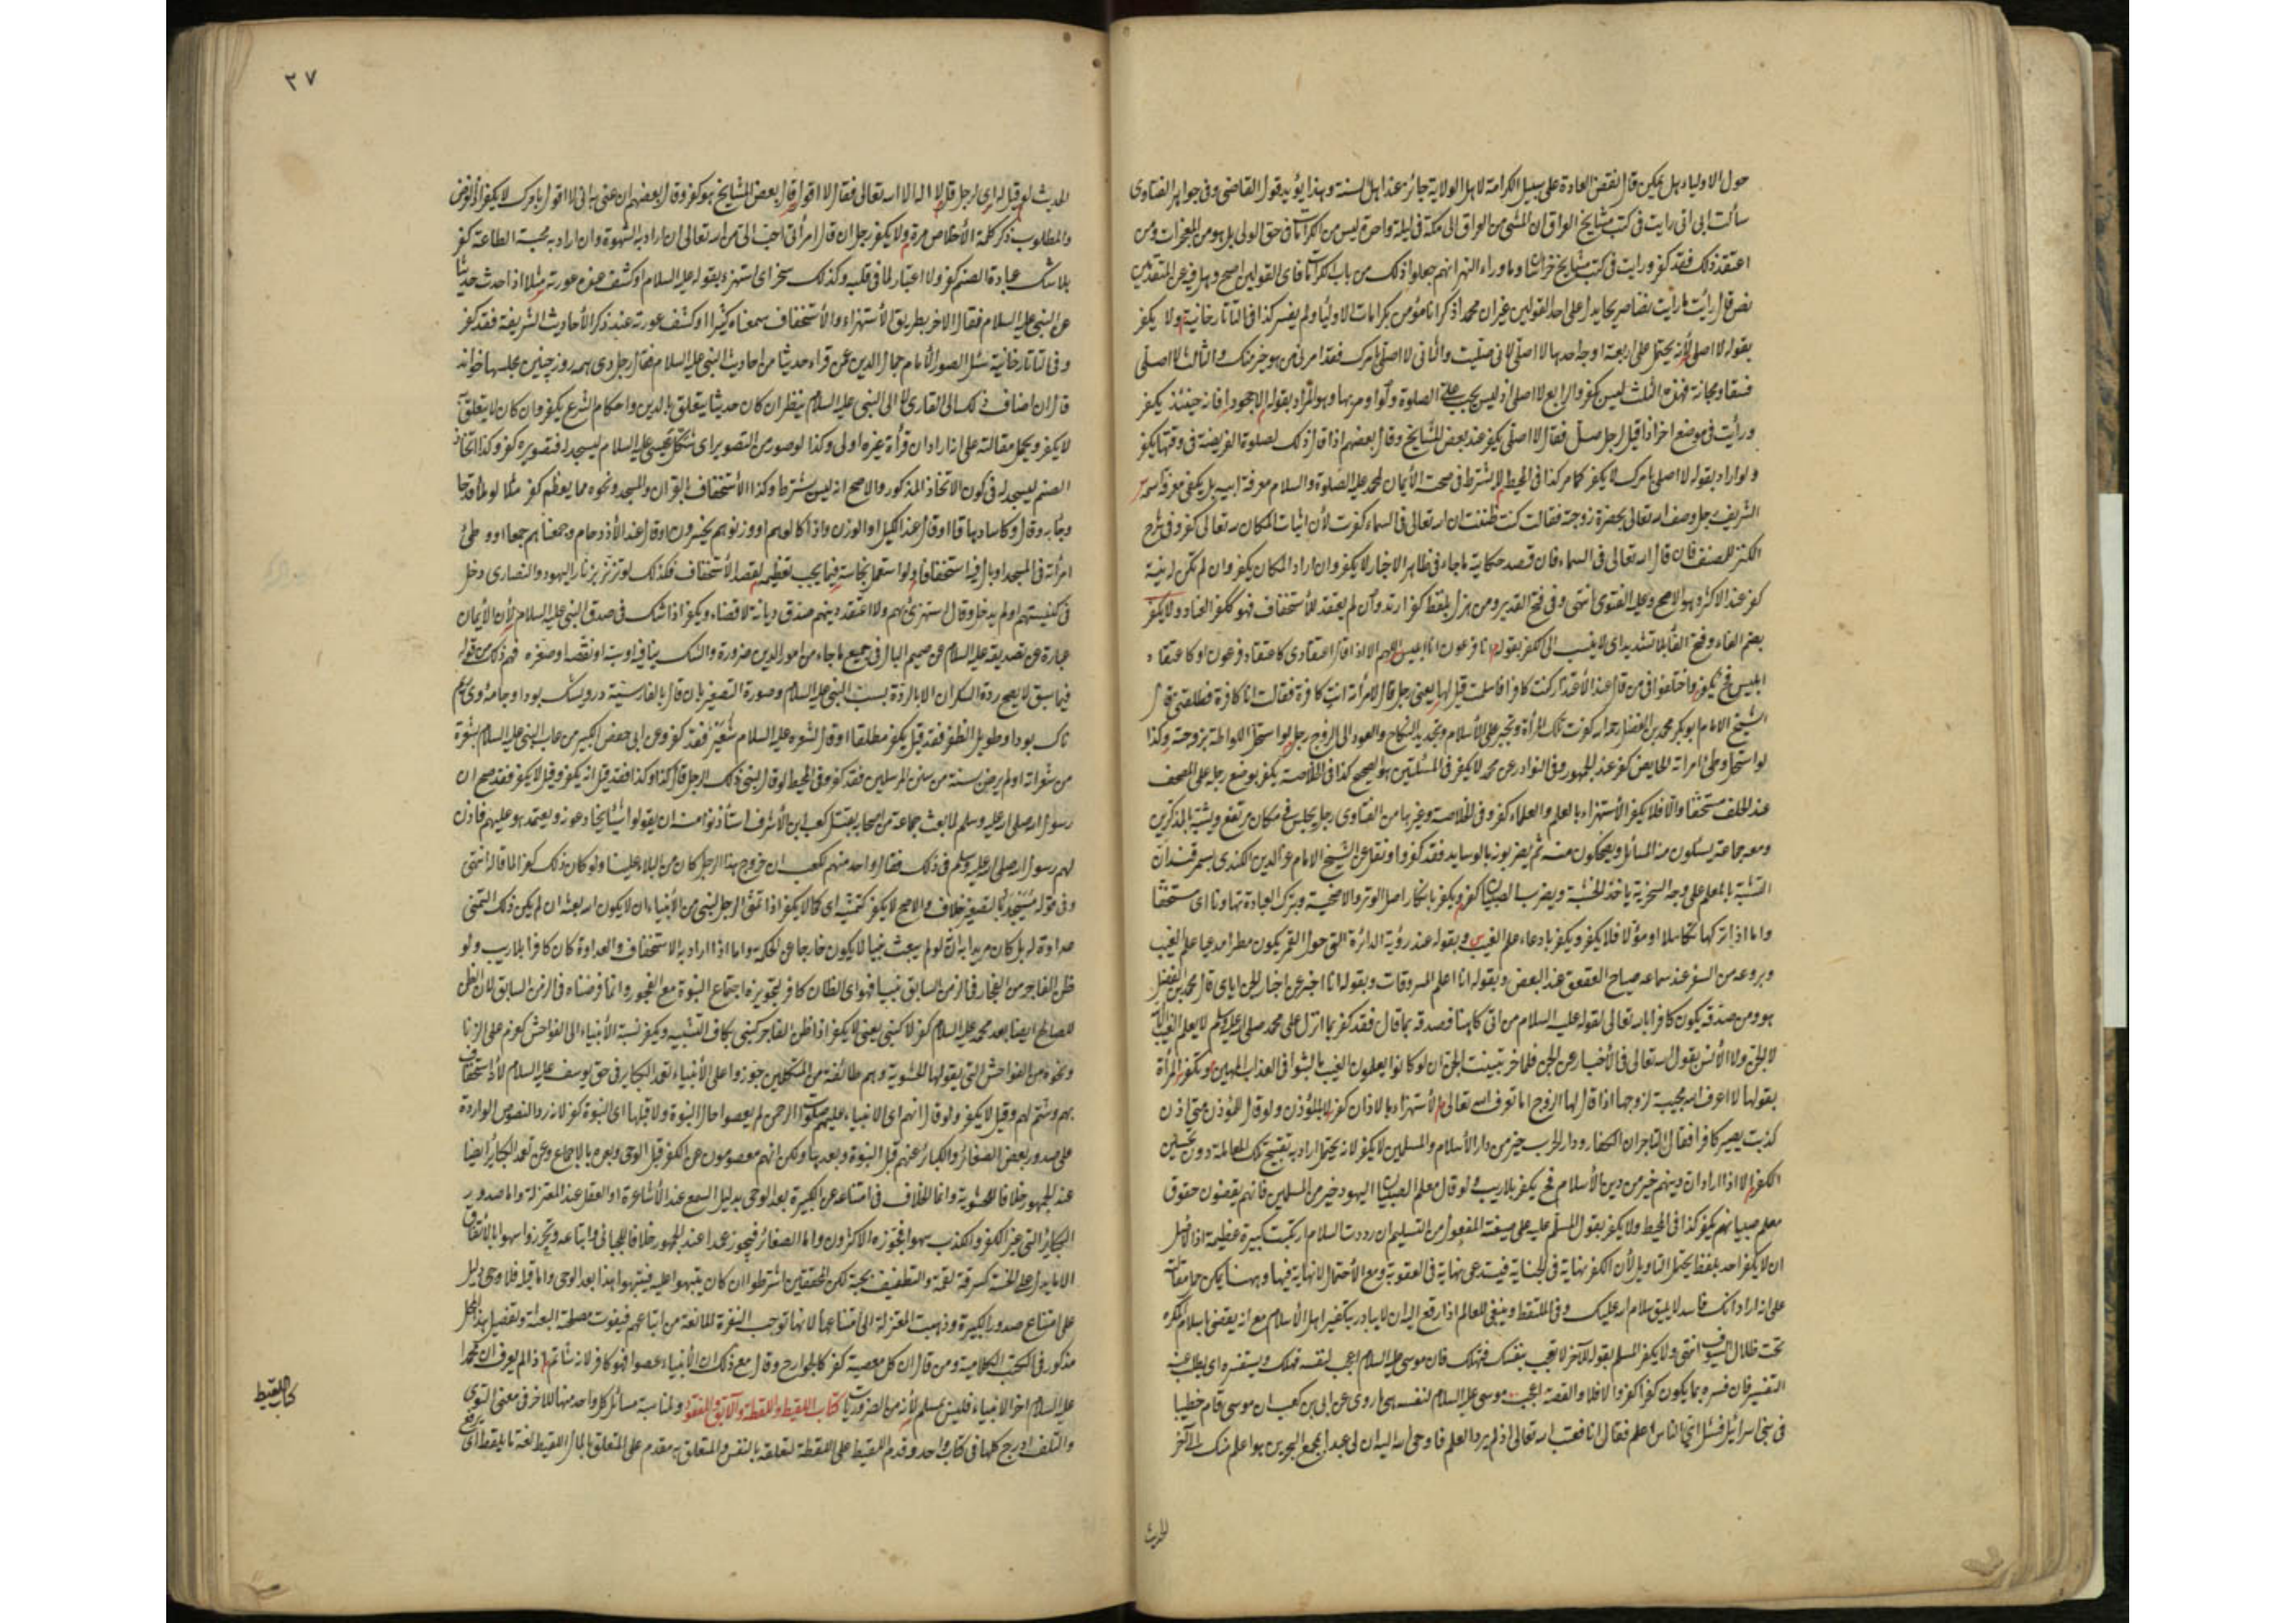 حول الاولياء هل يمكن قال نقض العادة على سبيل الكرامة لاهل الولاية جائز عند اهل السنة وهذا يؤيد قول القاضي وفي جواهر الفتاوى
سألت ابي اني رايت في كتب مشايخ العراق ان المشي من العراق الى مكة في ليلة واحدة ليس من الكرامات في حق الولي بل هو من المعجزات ومن
اعتقد ذلك فقد كفر ورايت في كتب مشايخ خراسان وما وراء النهر انهم جعلوا ذلك من باب الكرامات فاي القولين اصح وهل فيه عن المتقدمين
نص قال رأيت ما رايت نصا صريحا يدل على احد القولين غير ان محمدا ذكر انا نؤمن بكرامات الاولياء ولم يفسر كذا في التاتارخانية ولا يكفر
بقوله لا اصلي لأنه يحتمل على اربعة اوجه احدها لا اصلي لاني صليت والثاني لا اصلي بامرك فقد امرني من هو خير منك والثالث لا اصلي
فسقا ومجانة فهذه الثلث ليس بكفر والرابع لا اصلي اذ ليس يجب علي الصلوة ولم اومر بها وهو المراد بقوله الا جحودا فانه حينئذ يكفر
ورأيت في موضع اخر اذا قيل لرجل صل فقال لا اصلي يكفر عند بعض المشايخ وقال بعضهم اذا قال ذلك لصلوة الفريضة في وقتها يكفر
ولو اراد بقوله لا اصلي بامرك لا يكفر كما مر كذا في المحيط لا يشترط في صحة الأيمان لمحمد عليه الصلوة والسلام معرفة ابيه بل يكفي معرفة اسمه
الشريف رجل وصف الله تعالى بحضرة زوجته فقالت كنت ظننت ان الله تعالى في السماء كفرت لأن اثبات المكان لله تعالى كفر وفي شرح
الكنز للمصنف فان قال الله تعالى في السماء فان قصد حكاية ما جاء في ظاهر الاخبار لا يكفر وان اراد المكان يكفر وان لم تكن له نية
كفر عند الاكثر وهو الاصح وعليه الفتوى انتهى وفي فتح القدير ومن هزل بلفظ كفر ارتد وان لم يعتقد للأستخفاف فهو ككفر العناد ولا يكفر
بضم الفاء وفتح الفاء بلا تشديد اي لا ينسب الى الكفر بقوله انا فرعون انا ابليس اللهم الا اذا قال اعتقادي كاعتقاد فرعون او كاعتقاد
ابليس فح يكفر واختلفوا في من قال عند الأعتذار كنت كافرا فاسلمت قيل لها يعني رجل قال لامرأته انت كافرة فقالت انا كافرة فطلقني قال
الشيخ الامام ابو بكر محمد بن الفضل رحمه الله كفرت تلك المرأة وتجبر على الأسلام وتجديد النكاح والعود الى الزوج رجل لو استحل اللواطة بزوجته وكذا
لو استحل وطئ امرأته الحايض كفر عند الجمهور وفي النوادر عن محمد لا يكفر في المسئلتين هو الصحيح كذا في الخلاصة يكفر بوضع رجله على المصحف
عند الحلف مستخفا والا فلا يكفر الأستهزاء بالعلم والعلماء كفر وفي الخلاصة وغيرها من الفتاوى رجل يجلس في مكان مرتفع ويشبه بالمذكرين
ومعه جماعة يسئلون منه المسائل ويضحكون منه ثم يضربونه بالوسايد فقد كفروا ونقل عن الشيخ الامام عز الدين الكندي بسمرقند ان
التشبه بالمعلم على وجه السخرية ياخذ الخشبة ويضرب الصبيان كفر ويكفر بانكار اصل الوتر والاضحية وبترك العبادة تهاونا اي مستخفا
واما اذا تركها تكاسلا او مؤولا فلا يكفر ويكفر بادعاء علم الغيب وبقوله عند رؤية الدائرة التي حول القمر يكون مطر مدعيا علم الغيب
وبرجوعه من السفر عند سماعه صياح العقعق عند البعض وبقوله انا اعلم المسروقات وبقوله انا اخبر عن اخبار الجن اياي قال محمد بن الفضل
هو ومن صدقه يكون كافرا بالله تعالى لقوله عليه السلام من اتى كاهنا فصدقه بما قال فقد كفر بما انزل على محمد صلى الله عليه وسلم لا يعلم الغيب
لا الجن ولا الأنس يقول الله تعالى في الأخبار عن الجن فلما خر تبينت الجن ان لو كانوا يعلمون الغيب ما لبثوا في العذاب المهين وتكفر المرأة
بقولها لا اعرف الله مجيبة لزوجها اذا قال لها الزوج اما تعرف الله تعالى الأستهزاء بالاذان كفر لا بالمؤذن ولو قال للمؤذن حين اذن
كذبت يصير كافرا فقال التاجر ان الكفار ودار الحرب خير من دار الأسلام والمسلمين لا يكفر لانه يحتمل اراد به تقبيح تلك المعاملة دون تحسين
الكفر الا اذا اراد ان دينهم خير من دين الأسلام فح يكفر بلا ريب ولو قال معلم الصبيان اليهود خير من المسلمين فانهم يقضون حقوق
معلم صبيانهم يكفر كذا في المحيط ولا يكفر بقول المسلم عليه على صيغة المفعول من التسليم ان رددت السلام ارتكبت كبيرة عظيمة اذ الأصل
ان لا يكفر احد بلفظ يحتمل التاويل لأن الكفر نهاية في الجناية فيستدعي نهاية في العقوبة ومع الأحتمال لا نهاية فيها وههنا يمكن حمل مقالته
على انه اراد انك فاسد لا يليق سلام الله عليك وفي الملتقط وينبغي للعالم اذا رفع اليه ان لا يبادر بتكفير اهل الأسلام مع انه يقضي باسلام المكره
تحت ظلال السيوف انتهى ولا يكفر المسلم بقوله للآخر لا تعجب بنفسك فتهلك فان موسى عليه السلام اعجب لنفسه فهلك ويستفسر اي يطلب عنه
التفسير فان فسره بما يكون كفرا كفر والا فلا والقصة اعجب موسى عليه السلام لنفسه هي ما روي عن ابي بن كعب ان موسى قام خطيبا
في بني اسرائيل فسئل اي الناس اعلم فقال انا فعتب الله تعالى اذ لم يرد العلم فاوحى الله اليه ان لي عبدا بمجمع البحرين هو اعلم منك الى آخر
الحديث
٢٧
الحديث لو قيل له اي لرجل قل لا اله الا الله تعالى فقال لا اقول قال بعض المشايخ هو كفر وقال بعضهم ان عنى به اني لا اقول بامرك لا يكفر
والمطلوب ذكر كلمة الأخلاص مرة ولا يكفر رجل ان قال امرأتي احب الي من الله تعالى ان اراد به الشهوة وان اراد به محبة الطاعة كفر
بلا شك عبادة الصنم كفر ولا اعتبار لما في قلبه وكذلك سخر اي استهزء بقوله عليه السلام او كشف عنده عورته مثلا اذا حدث حديثا
عن النبي عليه السلام فقال الاخر بطريق الأستهزاء والأستخفاف سمعناه كثيرا او كشف عورته عند ذكر الأحاديث الشريفة فقد كفر
وفي التاتارخانية سئل الصدر الأمام جمال الدين عن قراء حديثا من احاديث النبي عليه السلام فقال رجل دي همه روز چنين مجلسها خواند
قال ان اضاف ذلك الى القارئ لا الى النبي عليه السلام ينظر ان كان حديثا يتعلق بالدين واحكام الشرع يكفر وان كان لا يتعلق به
لا يكفر ويحمل مقالته على انه اراد ان قرأة غيره اولى وكذا لو صور من التصوير اي شكل عيسى عليه السلام ليسجد له فتصويره كفر وكذا اتخاذ
الصنم ليسجد له في كون الاتخاذ المذكور والاصح انه ليس بشرط وكذا الأستخفاف بالقرآن والمسجد ونحوه مما يعظم كفر مثلا لو ملأ قدحا
وجاء به وقال وكاسا دهاقا او قال عند الكيل او الوزن واذا كالوهم او وزنوهم يخسرون او قال عند الأزدحام وجمعناهم جمعا او وطئ
امرأته في المسجد او بال فيه استخفافا ولو استعمل نجاسة فيما يجب تعظيمه لقصد الأستخفاف فكذلك لو تزنر بزنار اليهود والنصارى دخل
في كنيستهم او لم يدخل وقال استهزئ بهم ولا اعتقد دينهم صدق ديانة لا قضاء ويكفر اذا شك في صدق النبي عليه السلام لأن الأيمان
عبارة عن تصديقه عليه السلام من صميم البال في جميع ما جاء من امور الدين ضرورة والشك ينافيه او سبه او نقصه او صغره فهم ذلك من قوله
فيما سبق لا يصح ردة السكران الا بالردة بسب النبي عليه السلام وصورة التصغير بان قال بالفارسية درويشك بود او جامه وى
ناك بود او طويل الظفر فقد قيل يكفر مطلقا او قال لشعره عليه السلام شعير فقد كفر وعن ابي حفص الكبير من عاب النبي عليه السلام بشعرة
من شعراته او لم يرض بسنة من سنن المرسلين فقد كفر وفي المحيط لو قال للنبي ذلك الرجل قال كذا وكذا فقد قيل انه يكفر وقيل لا يكفر فقد صح ان
رسول الله صلى الله عليه وسلم لما بعث جماعة من اصحابه بقتل كعب ابن الأشرف استأذنوا منه ان يقولوا اشياء يخادعونه ويعتمد هو عليهم فاذن
لهم رسول الله صلى الله عليه وسلم في ذلك فقال واحد منهم لكعب ان خروج هذا الرجل كان من البلاء علينا ولو كان ذلك كفر لما قاله انتهى
وفي قوله مسيجد بالتصغير خلاف والاصح لا يكفر كتمنيه اي كما لا يكفر اذا تمنى الرجل لنبي من الأنبياء ان لا يكون الله بعثه ان لم يكن ذلك التمني
عداوة له بل كان مريدا به انه لو لم يبعث نبيا لا يكون خارجا عن الحكمة واما اذا اراد به الاستخفاف والعداوة كان كافرا بلا ريب ولو
ظن الفاجر من الفجار في الزمن السابق نبيا فهو اي الظان كافر لتجويزه اجتماع النبوة مع الفجور وانما فرضناه في الزمن السابق لان الظن
للصالح ايضا بعد محمد عليه السلام كفر لا كنبي يعني لا يكفر اذا ظن الفاجر كنبي بكاف التشبيه ويكفر نسبة الأنبياء الى الفواحش كعزم على الزنا
ونحوه من الفواحش التي يقولها الحشوية وهم طائفة من المتكلمين جوزوا على الأنبياء تعمد الكباير في حق يوسف عليه السلام لأنه استخفاف
بهم وشتم لهم وقيل لا يكفر ولو قال انهم اي الانبياء عليهم صلوات الرحمن لم يعصوا حال النبوة ولا قبلها اي النبوة كفر لانه رد النصوص الواردة
على صدور بعض الصغائر والكبائر عنهم قبل النبوة وبعدها ولكن انهم معصومون عن الكفر قبل الوحي وبعده بالاجماع وعن تعمد الكبائر ايضا
عند الجمهور خلافا للحشوية وانما الخلاف في امتناعه عن الكبيرة بعد الوحي بدليل السمع عند الأشاعرة او العقل عند المعتزلة واما صدور
الكبائر التي غير الكفر والكذب سهوا فجوزه الاكثرون واما الصغائر فيجوز عمدا عند الجمهور خلافا للجبائي واتباعه ويجوز سهوا بالأتفاق
الا ما يدل على الخسة كسرقة لقمة والتطفيف بحبة لكن المحققين اشترطوا ان كان ينبهوا عليه فينتهوا هذا بعد الوحي واما قبله فلا وحي دليل
على امتناع صدور الكبيرة وذهبت المعتزلة الى امتناعها لانها توجب النفرة المانعة من اتباعهم فيفوت مصلحة البعثة وتفصيل هذا المحل
مذكور في الكتب الكلامية ومن قال ان كل معصية كفر كالخوارج وقال مع ذلك ان الأنبياء عصوا فهو كافر لانه شاتم اذا لم يعرف ان محمدا
عليه السلام اخر الانبياء فليس بمسلم لأنه من الضروريات كتاب اللقيط واللقطة والآبق والمفقود ولمناسبة مسائل كل واحد منها للاخر في معنى التوى
والتلف ادرج كلها في كتاب واحد وقدم اللقيط على اللقطة لتعلقه بالنفس والمتعلق به مقدم على المتعلق بالمال اللقيط لغة ما يلقط اي يرفع
كتاب اللقيط